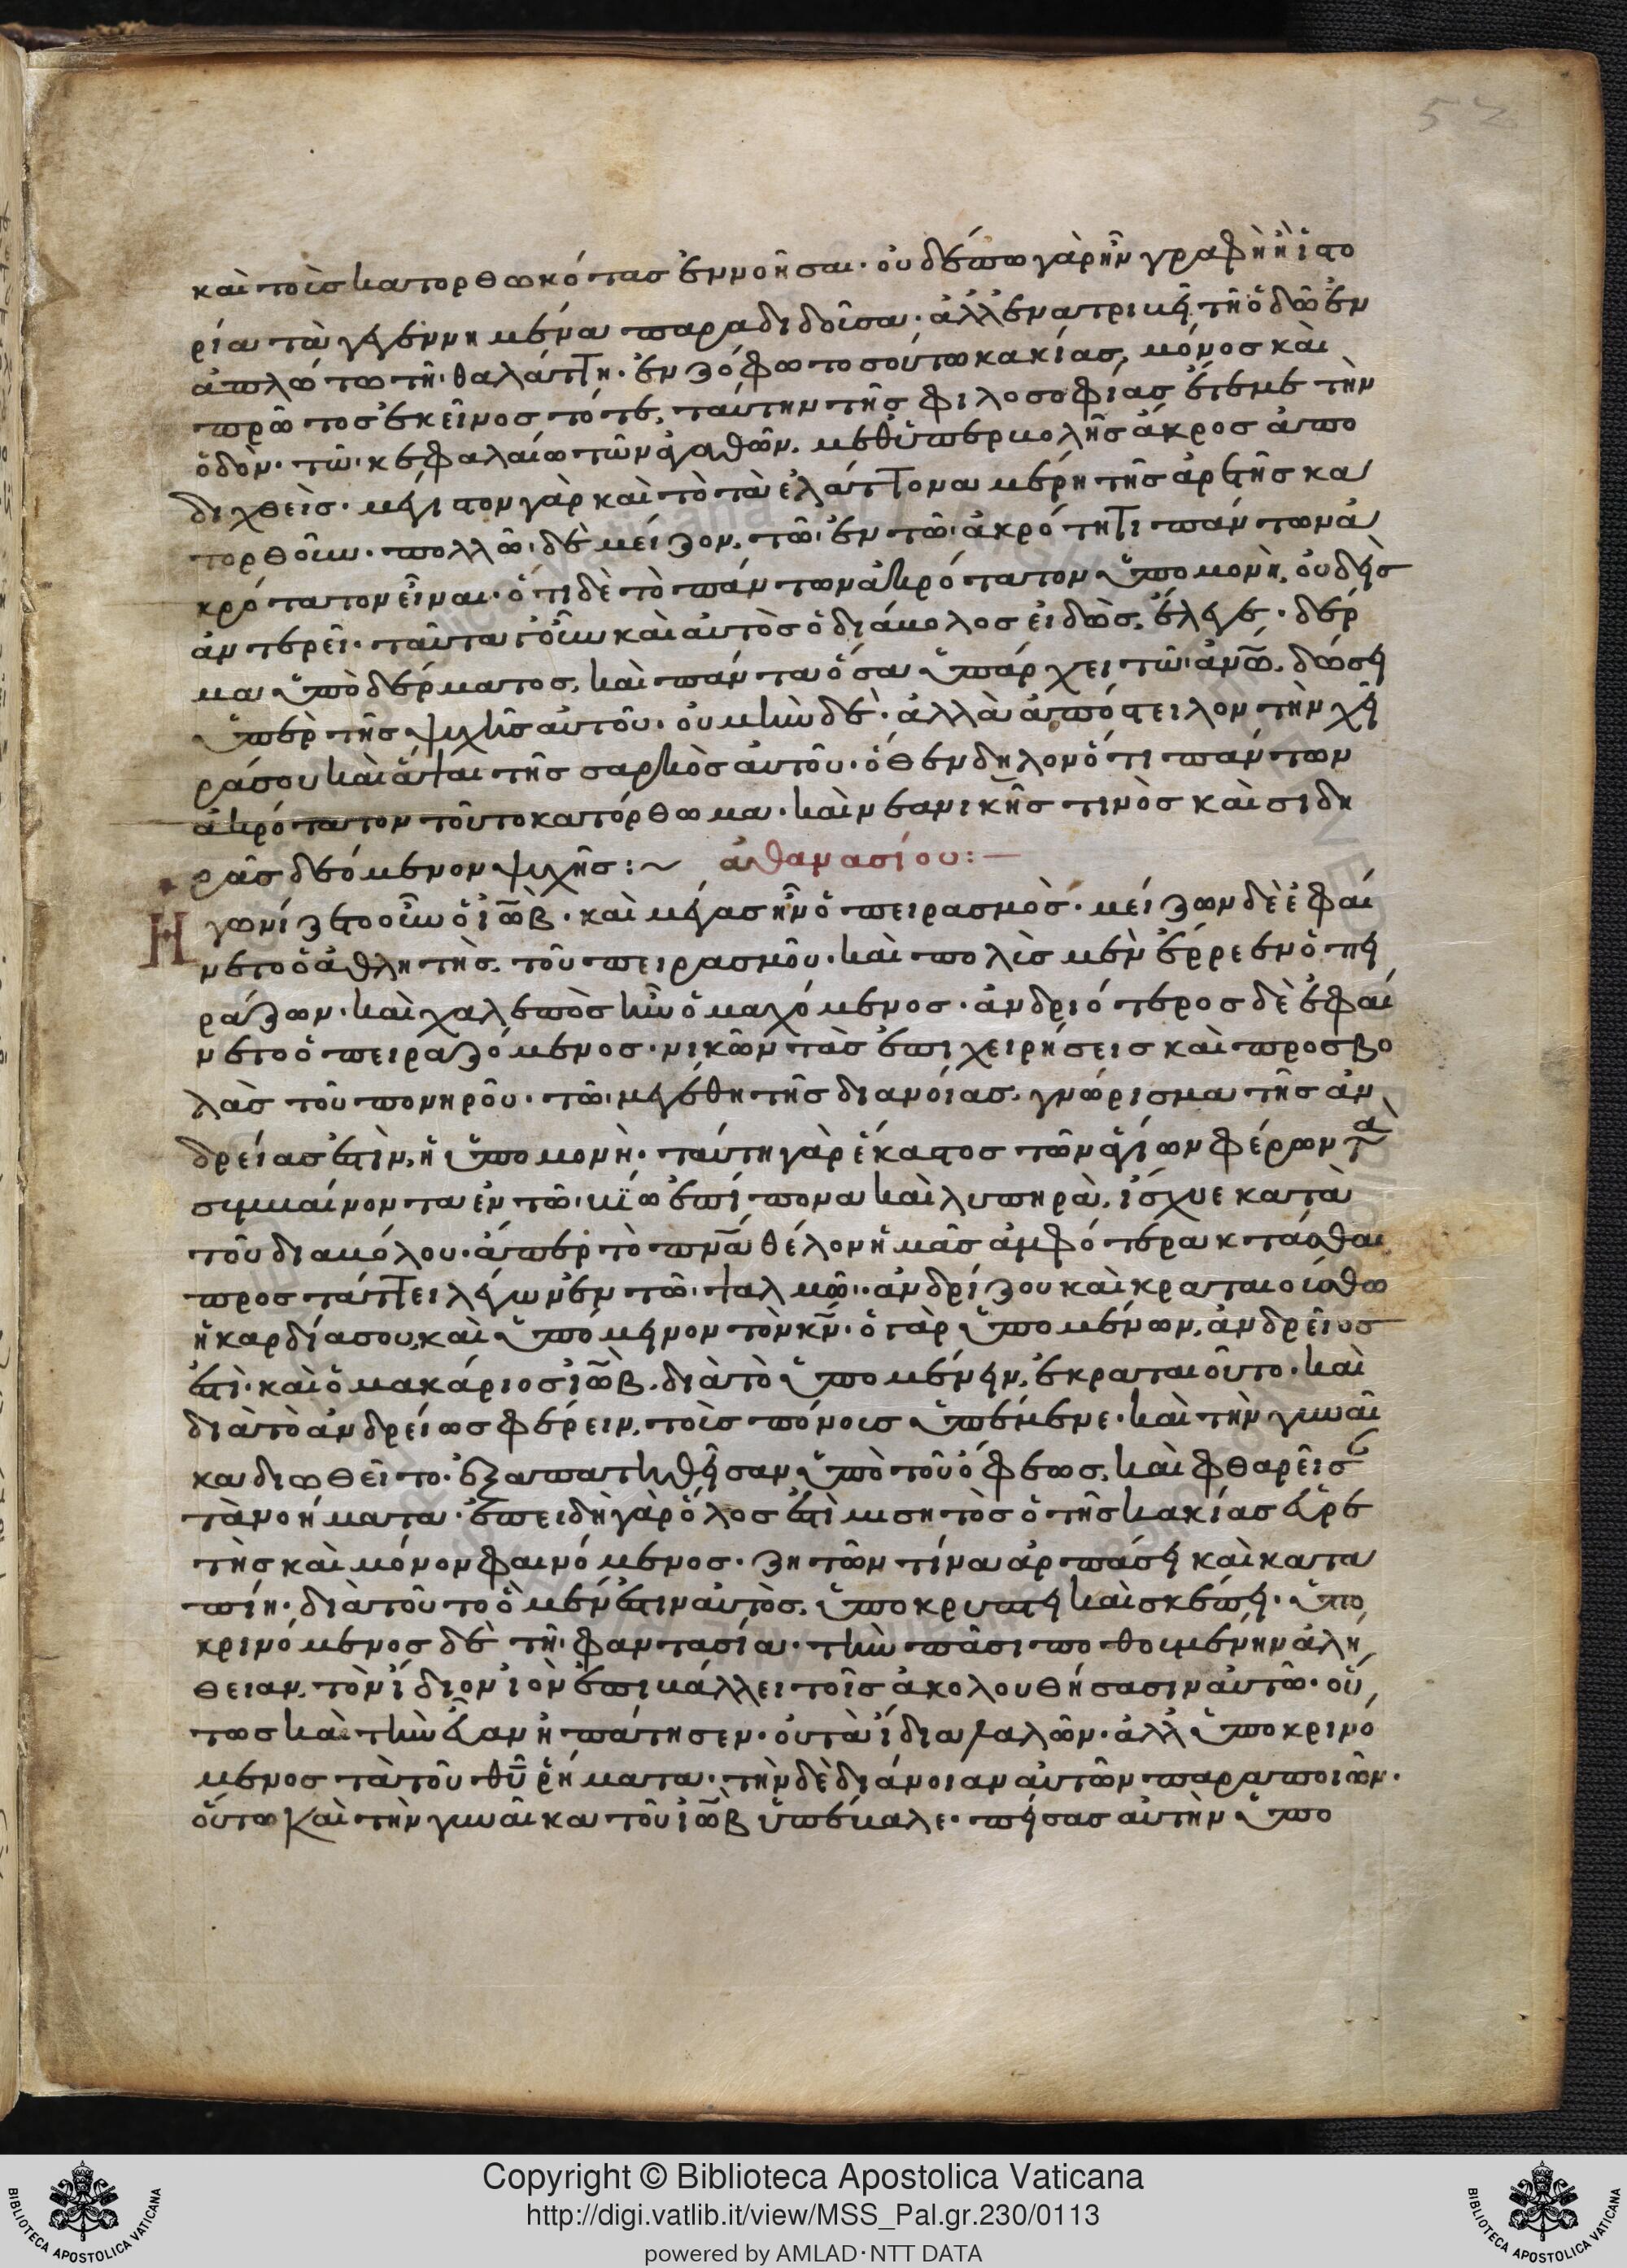 52
καὶ τοὶς κατορθωκότας ἐννοῆσαι· οὐδέπω γὰρ ἦν γραφὴ ἢ ἱστο
ρία τὰ γεγεννημένα παραδιδοῦσα· ἀλλ' ἐν ἀτριβεῖ τῆ ὁδῶ ἐν
ἀπλώτω τῆ θαλάττη· ἐν ζόφω τοσούτω κακίας, μόνος καὶ
πρῶτος ἐκεῖνος τότε, ταύτην τῆς φιλοσοφίας ἔτεμε τὴν
ὁδὸν· τῶ κεφαλαίω τῶν ἀγαθῶν, μεθ' ὑπερβολῆς ἄκρος ἀπο
διχθεὶς· μέγιστον γὰρ καὶ τὸ τὰ ἐλάττονα μέρη τῆς ἀρετῆς κα
τορθοῦν· πολλῶ δὲ μεῖζον, τῶ ἐν τῶ ἀκρότητι πάντων ἀ
κρότατον εἶναι· ὅτι δὲ τὸ πάντων ἀκρότατον ὑπομονὴ, οὐδεὶς
ἀντερεῖ· ταῦτα γοῦν καὶ αὐτὸς ὁ διάβολος εἰδὼς, ἔλεγε· δέρ
μα ὑπὸ δέρματος, καὶ πάντα ὅσα ὑπάρχει τῶ ἀνω, δώσει
ὑπὲρ τῆς ψυχῆς αὐτοῦ· οὐ μὴν δὲ· ἀλλὰ ἀπόστειλον τὴν χεῖ
ρά σου καὶ ἅψαι τῆς σαρκὸς αὐτοῦ· ὅθεν δηλονότι πάντων
ἀκρότατον τοῦτο κατόρθωμα· καὶ νεανικῆς τινὸς καὶ σιδη
ρᾶς δεόμενον ψυχῆς:~ ἀθανασίου:—
Ηγωνίζετο οὖν ὁ ἰὼβ· καὶ μέγας ἦν ὁ πειρασμὸς· μείζων δὲ ἐφαί
νετο ὁ ἀθλητὴς, τοῦ πειρασμοῦ· καὶ πολὶς μὲν ἔρρεεν ὁ πει
ράζων· καὶ χαλεπὸς ἦν ὁ μαχόμενος· ἀνδριότερος δὲ ἐφαί
νετο ὁ πειραζόμενος· νικῶν τὰς ἐπιχειρήσεις καὶ προσβο
λὰς τοῦ πονηροῦ· τῶ μεγέθη τῆς διανοίας, γνώρισμα τῆς ἀν
δρείας ἐστὶν, ἡ ὑπομονὴ· ταύτη γὰρ ἕκαστος τῶν ἁγίων φέρων τὰ
συμβαίνοντα ἐν τῶ βίω ἐπίπονα καὶ λυπηρὰ, ἴσχυε κατὰ
τοῦ διαβόλου· ἅπερ τὸ πνα θέλον ἡμᾶς ἀμφότερα κτᾶσθαι
προστάττει λέγων ἐν τῶ ψαλμῶ· ἀνδρίζου καὶ κραταιούσθω
ἡ καρδία σου, καὶ ὑπόμεινον τὸν κν· ὁ γὰρ ὑπομένων, ἀνδρεῖος
ἐστὶ· καὶ ὁ μακάριος ἰὼβ, διὰ τὸ ὑπομένειν, ἐκραταιοῦτο· καὶ
διὰ τὸ ἀνδρείως φέρειν, τοὶς πόνοις ὑπέμενε· καὶ τὴν γυναῖ
κα διωθεῖτο· ἐξαπατηθεῖσαν ὑπὸ τοῦ ὄφεως, καὶ φθαρεῖσα
τὰ νοήματα· ἐπειδὴ γὰρ ὅλος ἐστὶ μισητὸς ὁ τῆς κακίας εὑρε
τὴς καὶ μόνον φαινόμενος· ζητῶν τίνα ἁρπάσει καὶ κατα
πίη· διὰ τοῦτο ὃ μέν ἐστιν αὐτὸς, ὑποκρυπτει καὶ σκέπει· ὑπο
κρινόμενος δὲ τῆ φαντασία· τὴν πᾶσι ποθουμένην ἀλή
θειαν, τὸν ἴδιον ἰὸν ἐπιβάλλει τοῖς ἀκολουθήσασιν αὐτῶ· οὕ
τως καὶ τὴν εὔαν ἠπάτησεν· οὐ τὰ ἴδια λαλῶν· ἀλλ' ὑποκρινό
μενος τὰ τοῦ θυ ῥήματα· τὴν δὲ διάνοιαν αὐτῶν παραποιῶν·
οὕτω καὶ τὴν γυναῖκα τοῦ ἰὼβ ὑπέβαλε· πείσας αὐτὴν ὑπο
Copyright © Biblioteca Apostolica Vaticana
http://digi.vatlib.it/view/MSS_Pal.gr.230/0113
powered by AMLAD·NTT DATA
BIBLIOTECA APOSTOLICA VATICANA
BIBLIOTECA APOSTOLICA VATICANA